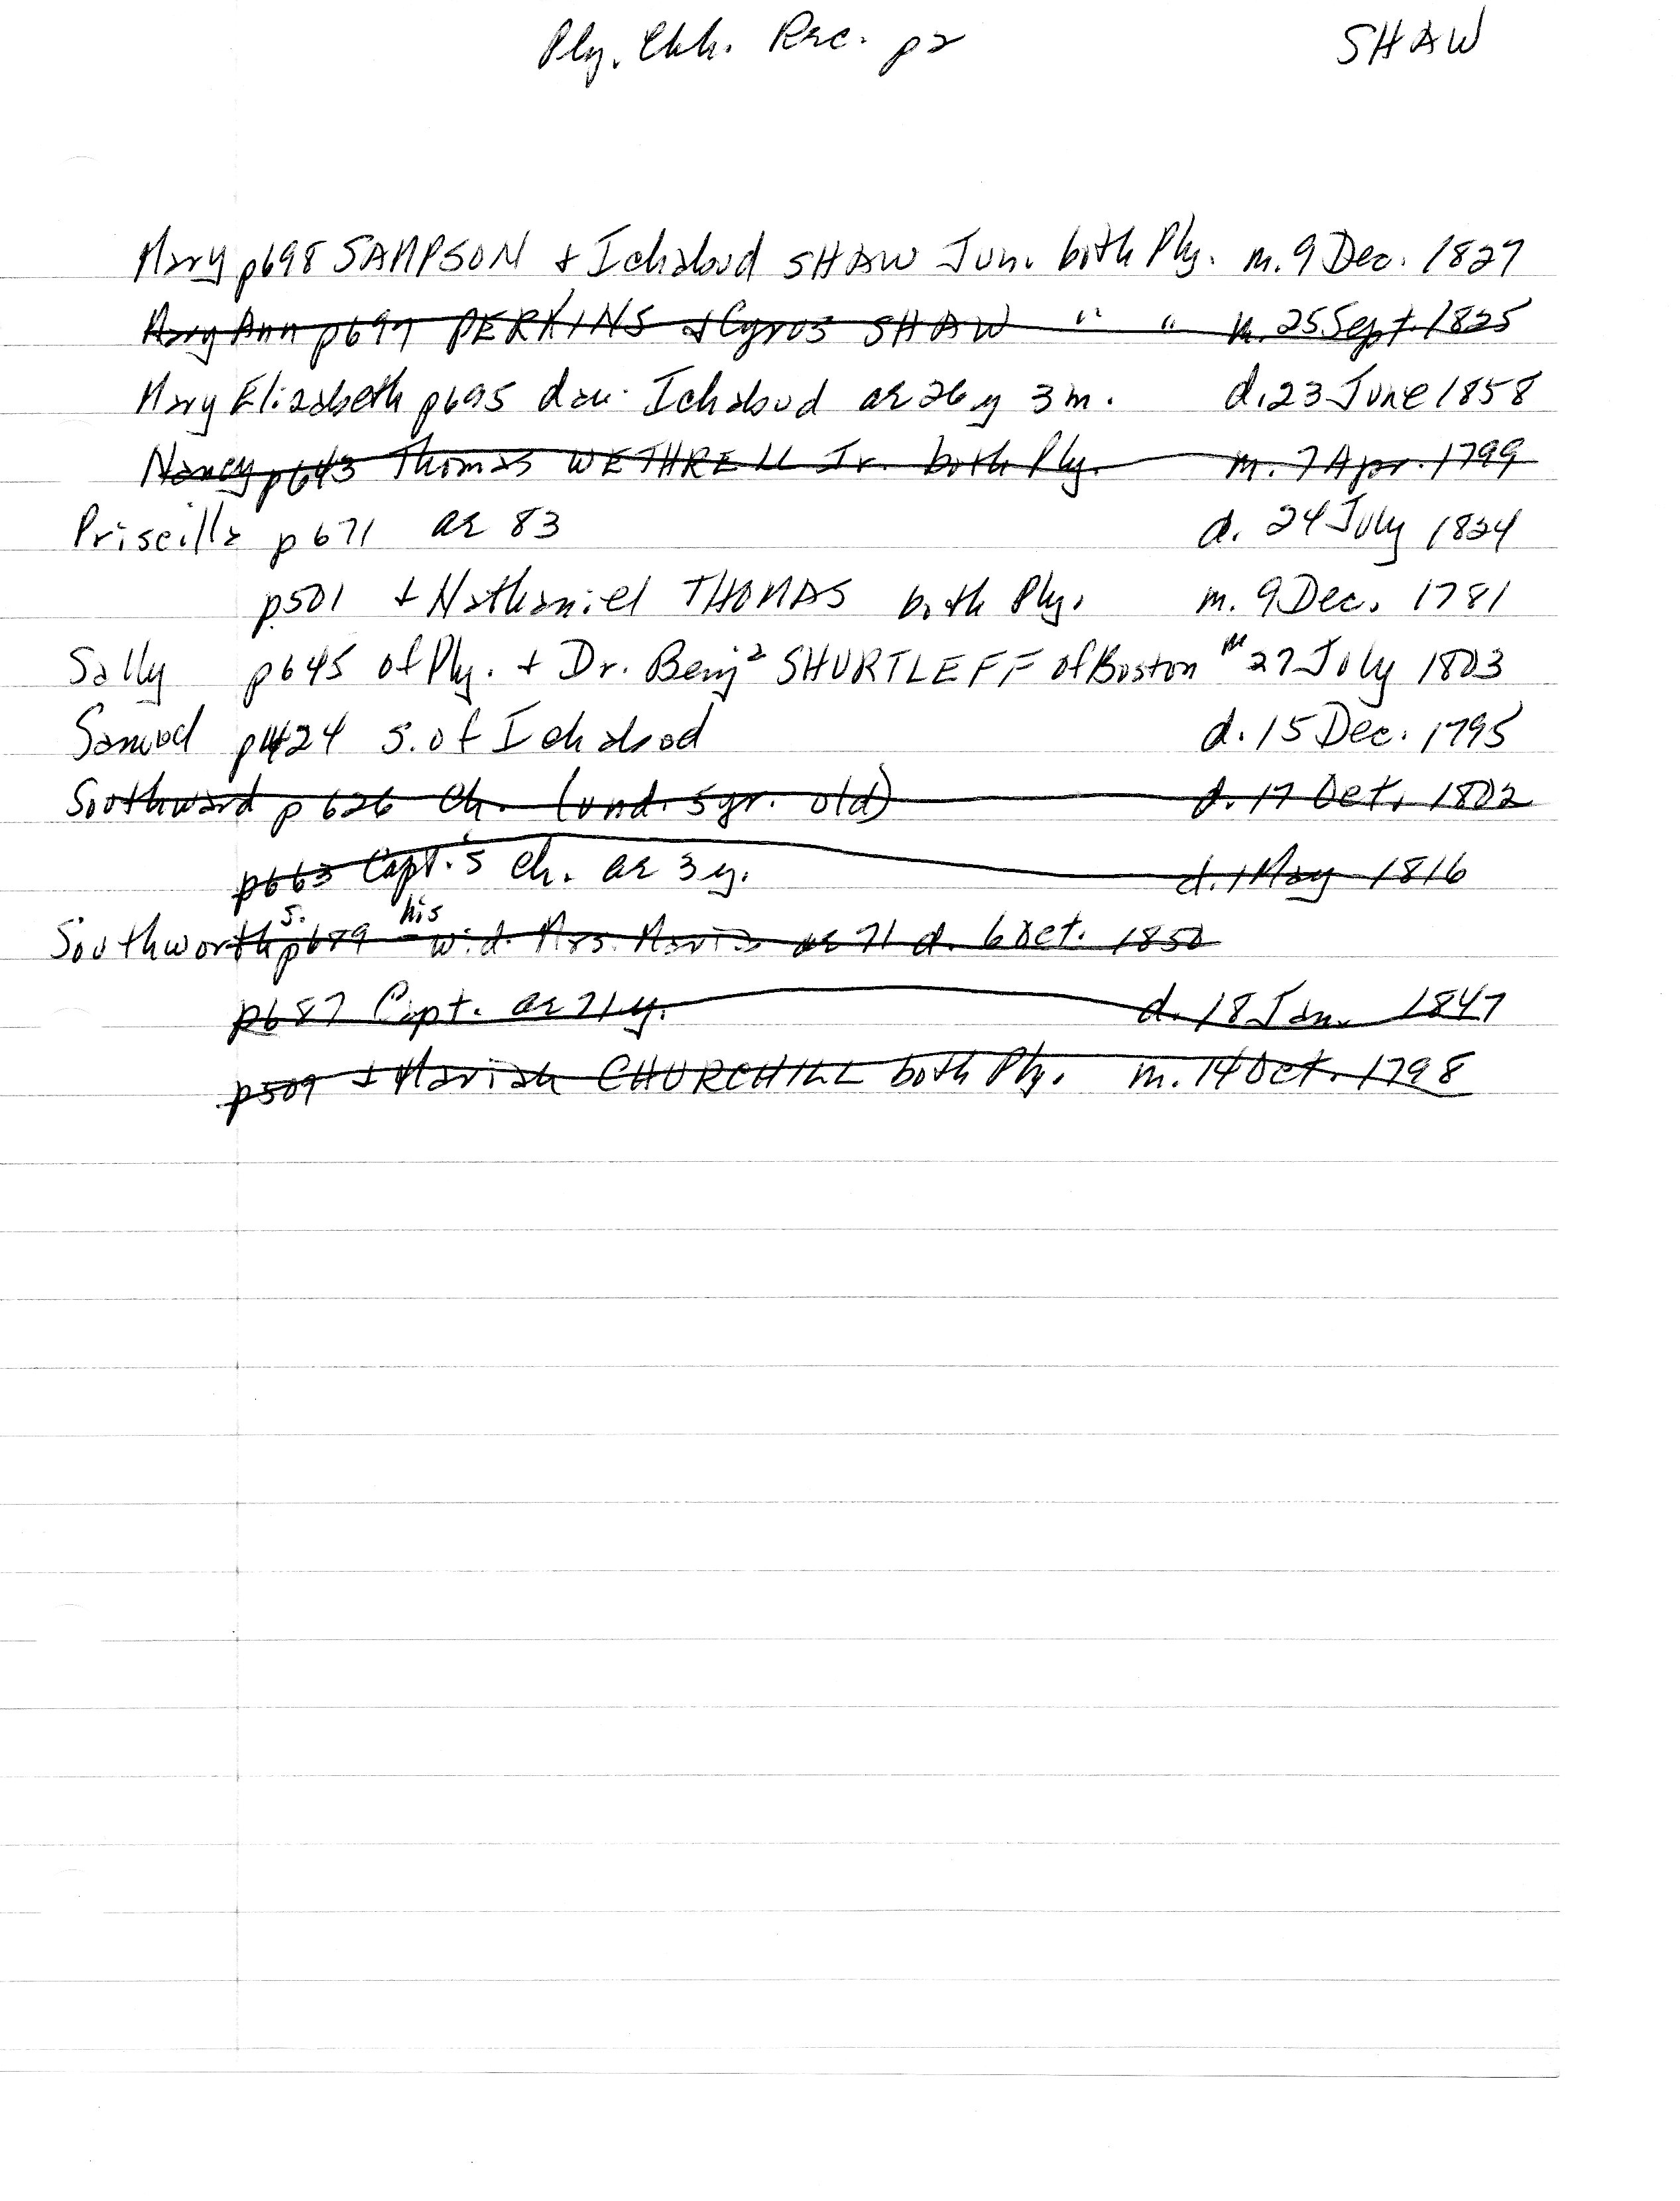 Ply. Chh. Rec. p2 SHAW
Mary p698 SAMPSON + Ichabod SHAW Jun. both Ply. m. 9 Dec. 1827
Mary Ann p697 PERKINS + Cyrus SHAW " " m. 25 Sept. 1825
Mary Elizabeth p695 dau. Ichabod ae 26 y 3 m. d. 23 June 1858
Nancy p643 Thomas WETHRELL Jr. both Ply. m. 7 Apr. 1799
Priscilla p671 ae 83 d. 24 July 1824
p501 + Nathaniel THOMAS both Ply. m. 9 Dec. 1781
Sally p645 of Ply. + Dr. Benjᵃ SHURTLEFF of Boston m 27 July 1803
Samuel p424 s. of Ichabod d. 15 Dec. 1795
Southward p626 Ch. (und. 5 yr. old) d. 17 Oct. 1802
p663 Capt.'s ch. ae 3 y. d. 1 May 1816
Southworth's p689 - his wid. Mrs. Maria ae 71 d. 6 Oct. 1850
p687 Capt. ae 71 y. d. 18 Jan. 1847
p509 + Mariah CHURCHILL both Ply. m. 14 Oct. 1798